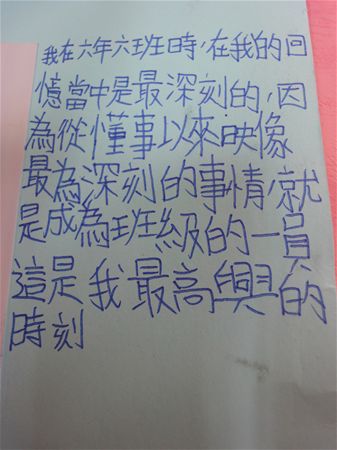 我在六年六班時,在我的回
憶當中是最深刻的,因
為從懂事以來映像
最為深刻的事情,就
是成為班級的一員
這是我最高興的
時刻